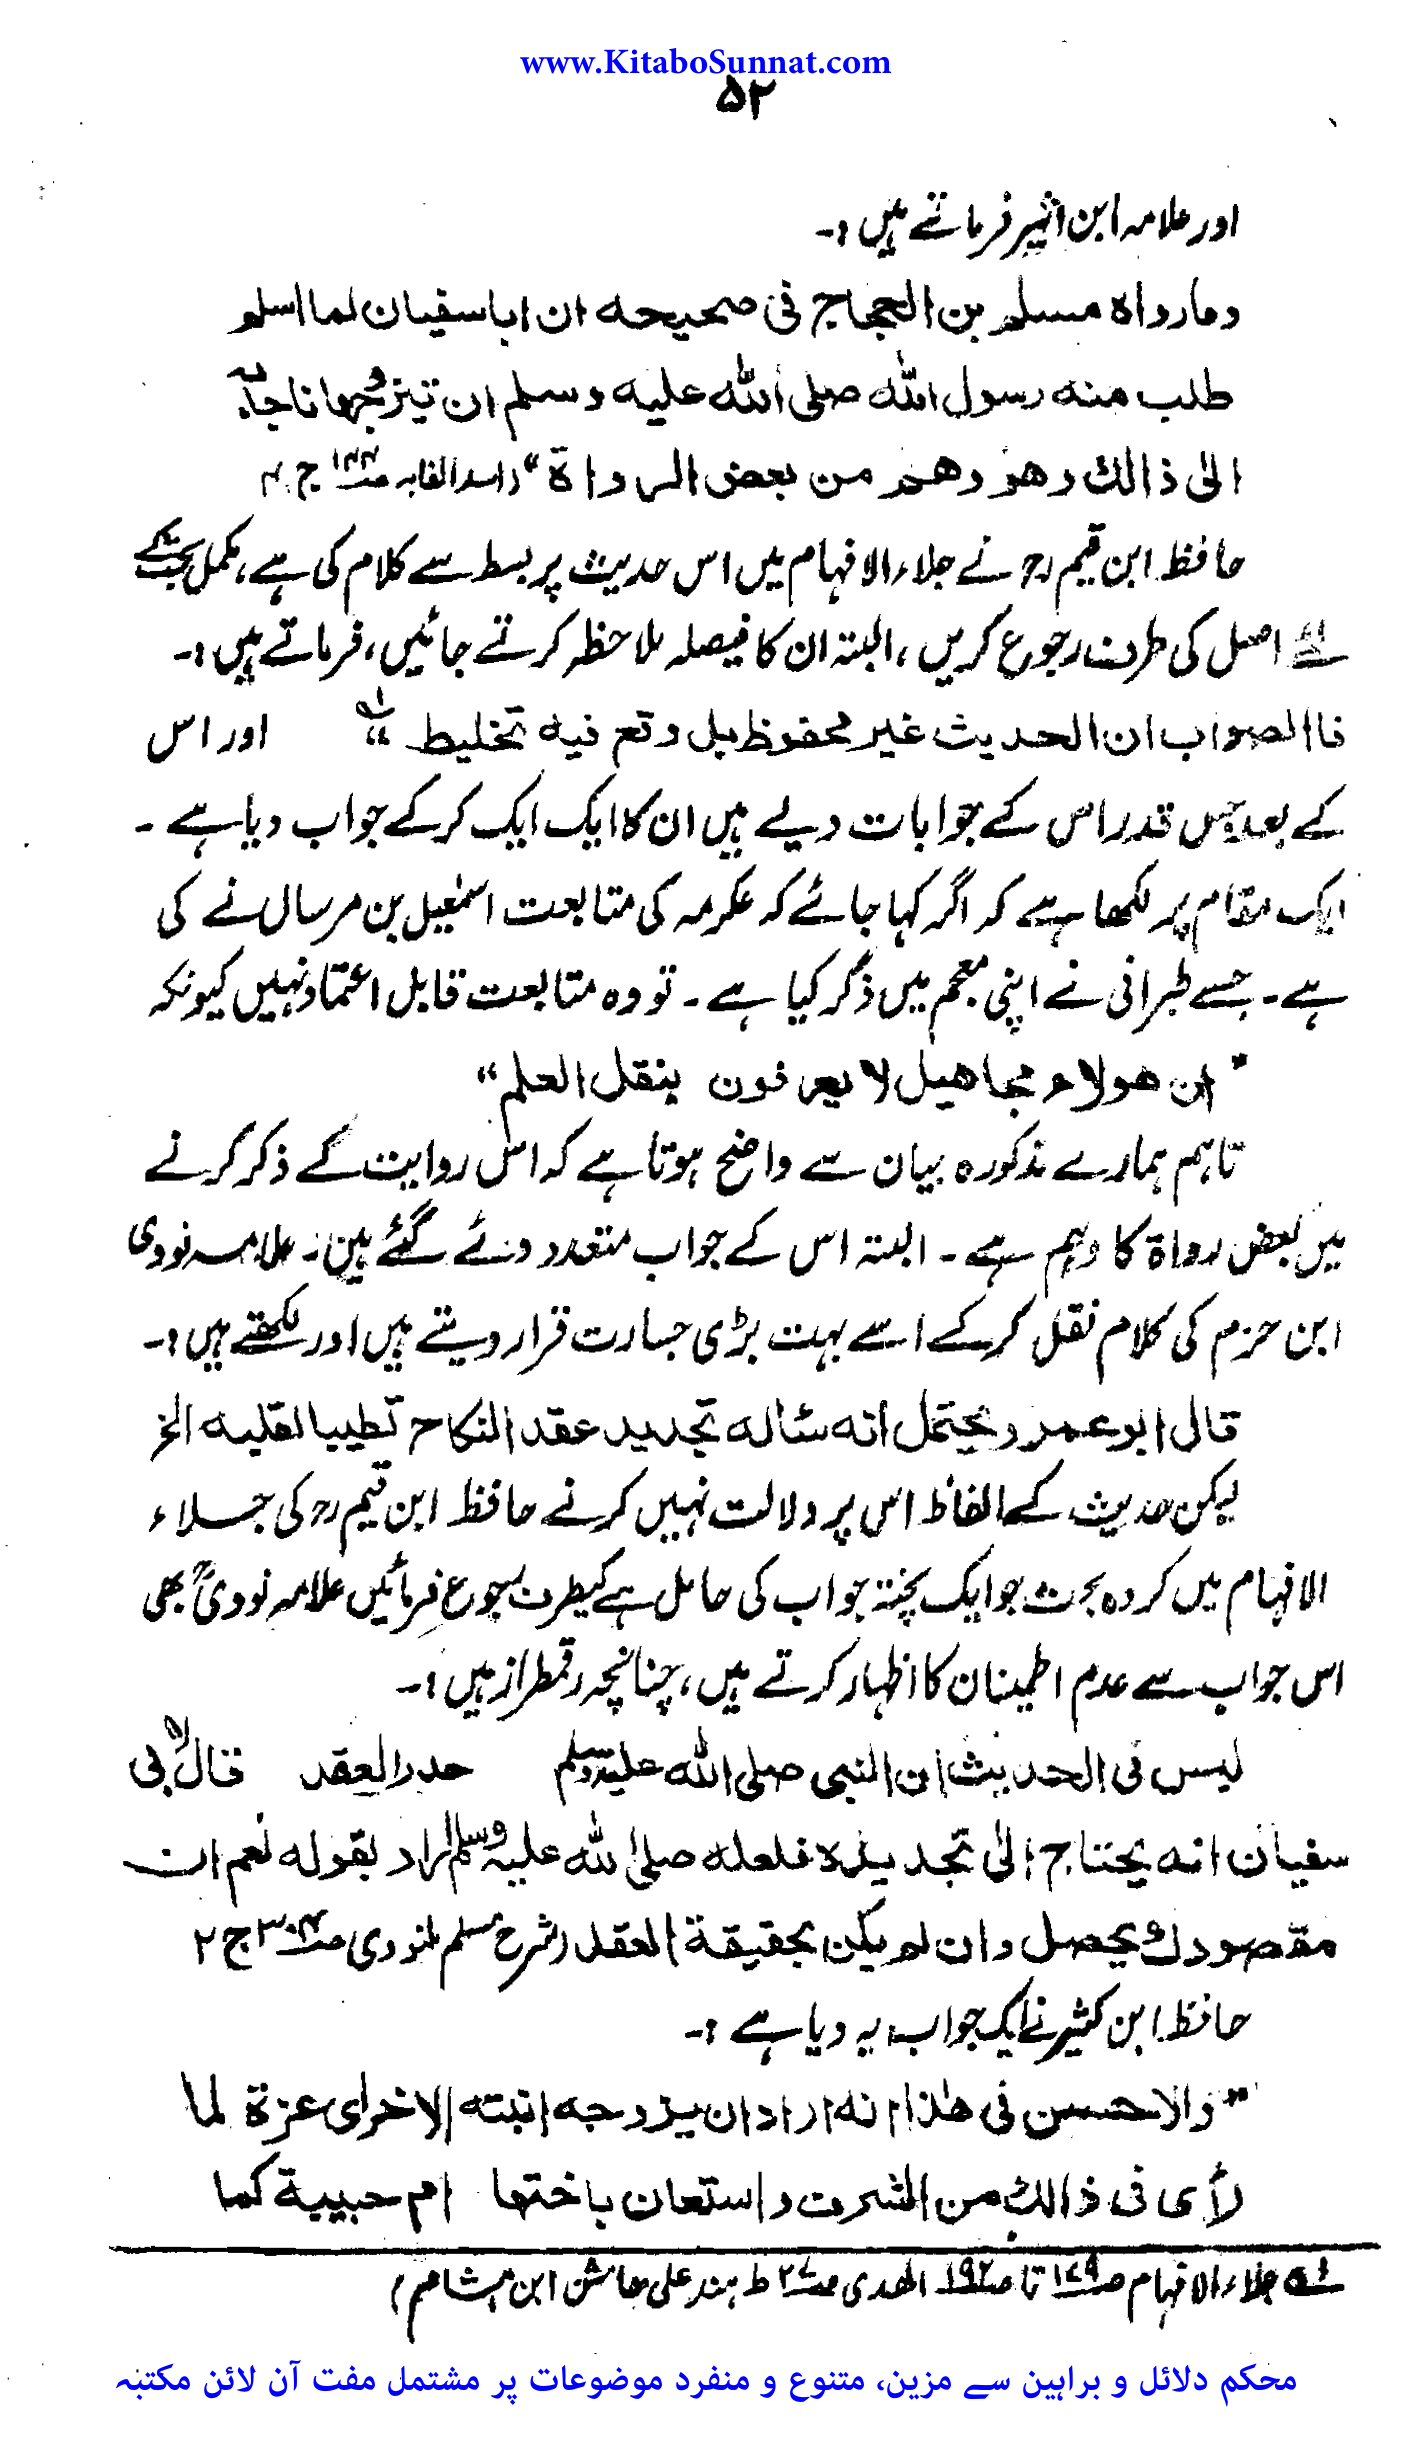 www.KitaboSunnat.com
۵۲
اور علامہ ابن اثیر فرماتے ہیں :۔
ومارواه مسلم بن الحجاج فی صحیحه ان اباسفیان لما اسلم
طلب منه رسول الله صلی الله علیه وسلم ان تیزوجها ناجابه
الیٰ ذالك وهو وهم من بعض الرواة“ (اسد الغابہ ج ۴
حافظ ابن قیم رح نے جلاء الافہام میں اس حدیث پر بسط سے کلام کی ہے، مکمل بحث کے
لئے اصل کی طرف رجوع کریں، البتہ ان کا فیصلہ ملاحظہ کرتے جائیں، فرماتے ہیں :۔
فاالصواب ان الحدیث غیر محفوظ بل وقع فیه تخلیط “ لہ اور اس
کے بعد جس قدر اس کے جوابات دیے ہیں ان کا ایک ایک کر کے جواب دیا ہے ۔
ایک مقام پر لکھا ہے کہ اگر کہا جائے کہ عکرمہ کی متابعت اسمٰعیل بن مرسال نے کی
ہے۔ جسے طبرانی نے اپنی معجم میں ذکر کیا ہے ۔ تو وہ متابعت قابل اعتماد نہیں کیونکہ
”ان هولاء مجاهیل لا یعرفون بنقل العلم“
تاہم ہمارے مذکورہ بیان سے واضح ہوتا ہے کہ اس روایت کے ذکر کرنے
میں بعض رواۃ کا وہم ہے ۔ البتہ اس کے جواب متعدد دئے گئے ہیں ۔ علامہ نووی
ابن حزم کی کلام نقل کر کے اسے بہت بڑی جسارت قرار دیتے ہیں اور لکھتے ہیں :۔
قال ابو عمر ویحتمل انه سئاله تجدید عقد النکاح تطیبا لقلبه الخ
لیکن حدیث کے الفاظ اس پر دلالت نہیں کرنے حافظ ابن قیم رح کی جلاء
الافہام میں کردہ بحث جو ایک پختہ جواب کی حامل ہے کیطرف رجوع فرمائیں علامہ نوویؒ بھی
اس جواب سے عدم اطمینان کا اظہار کرتے ہیں، چنانچہ رقمطراز ہیں :۔
لیس فی الحدیث ان النبی صلی الله علیه وسلم حدد العقد قال لابی
سفیان انه یحتاج الیٰ تجدیده فلعله صلی الله علیه وسلم اراد بقوله نعم ان
مقصودك یحصل وان لم یکن بحقیقة العقد (شرح مسلم لنووی ص۳۰۴ ج ۲
حافظ ابن کثیر نے ایک جواب یہ دیا ہے :۔
”والاحسن فی هٰذا انه اراد ان یزوجه ابنته الاخرای عزة لما
رأی فی ذالك من الشرف واستعان باختها ام حبیبة کما
لہ جلاء الافہام ص۱۷۹ تا ص۱۹۲ الھدی ص۲۷ ط ہند علی ھامش ابن ہشام م
محکم دلائل و براہین سے مزین، متنوع و منفرد موضوعات پر مشتمل مفت آن لائن مکتبہ